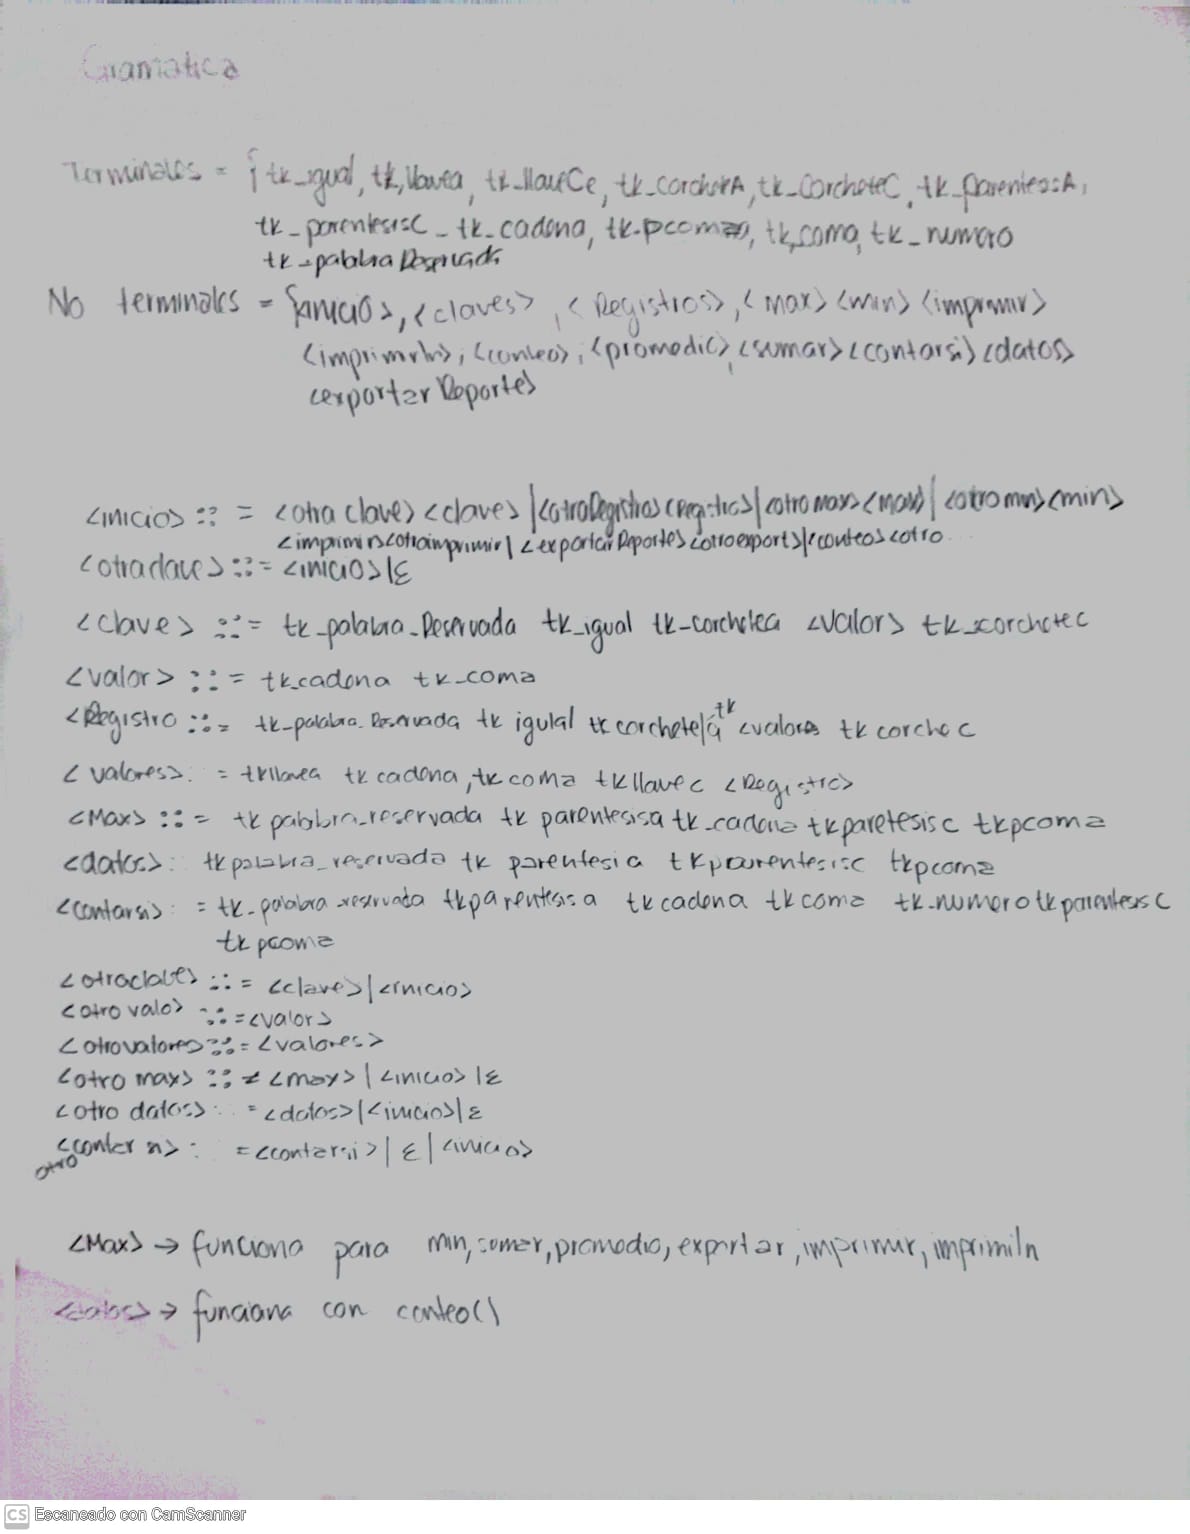 Gramatica
Terminales = { tk_igual, tk_llavea, tk_llaveCe, tk_corcheteA, tk_CorcheteC, tk_parentesisA,
tk_parentesisC_ tk_cadena, tk_pcoma, tk_coma, tk_numero
tk_palabra Reservada
No terminales = {<inicio>, <claves>, <Registros>, <max> <min> <imprimir>
<imprimirln>, <conteo>, <promedio>, <sumar> <contarsi> <datos>
<exportar Reporte>
<inicio> ::= <otra clave> <claves> | <otroRegistro> <Registro> | <otromax> <max> | <otromin> <min>
<imprimir> <otroimprimir> | <exportarReporte> <otroexport> | <conteo> <otro
<otraclave> ::= <inicio> | ε
<clave> ::= tk_palabra_Reservada tk_igual tk_corchetea <valor> tk_corchetec
<valor> ::= tk_cadena tk_coma
<Registro ::= tk_palabra_Reservada tk igulal tk corchete a tk <valores tk corche c
<valores>: = tkllavea tk cadena, tk coma tkllavec <Registro>
<Max> ::= tk palabra_reservada tk parentesisa tk_cadena tkparetesisc tkpcoma
<datos>: tkpalabra_reservada tk parentesia tkparentesisc tkpcoma
<contarsi>: = tk_palabra_reservada tkparentesisa tkcadena tkcoma tk_numero tkparentesisC
tk pcoma
<otraclave> ::= <clave> | <inicio>
<otro valo> ::= <valor>
<otrovalores> ::= <valores>
<otro max> ::= <max> | <inicio> | ε
<otro datos>: = <datos> | <inicio> | ε
<contar si>: = <contarsi> | ε | <inicio>
otro
<Max> → funciona para min, sumar, promedio, exportar, imprimir, imprimiln
<datos> → funciona con conteo()
CS Escaneado con CamScanner